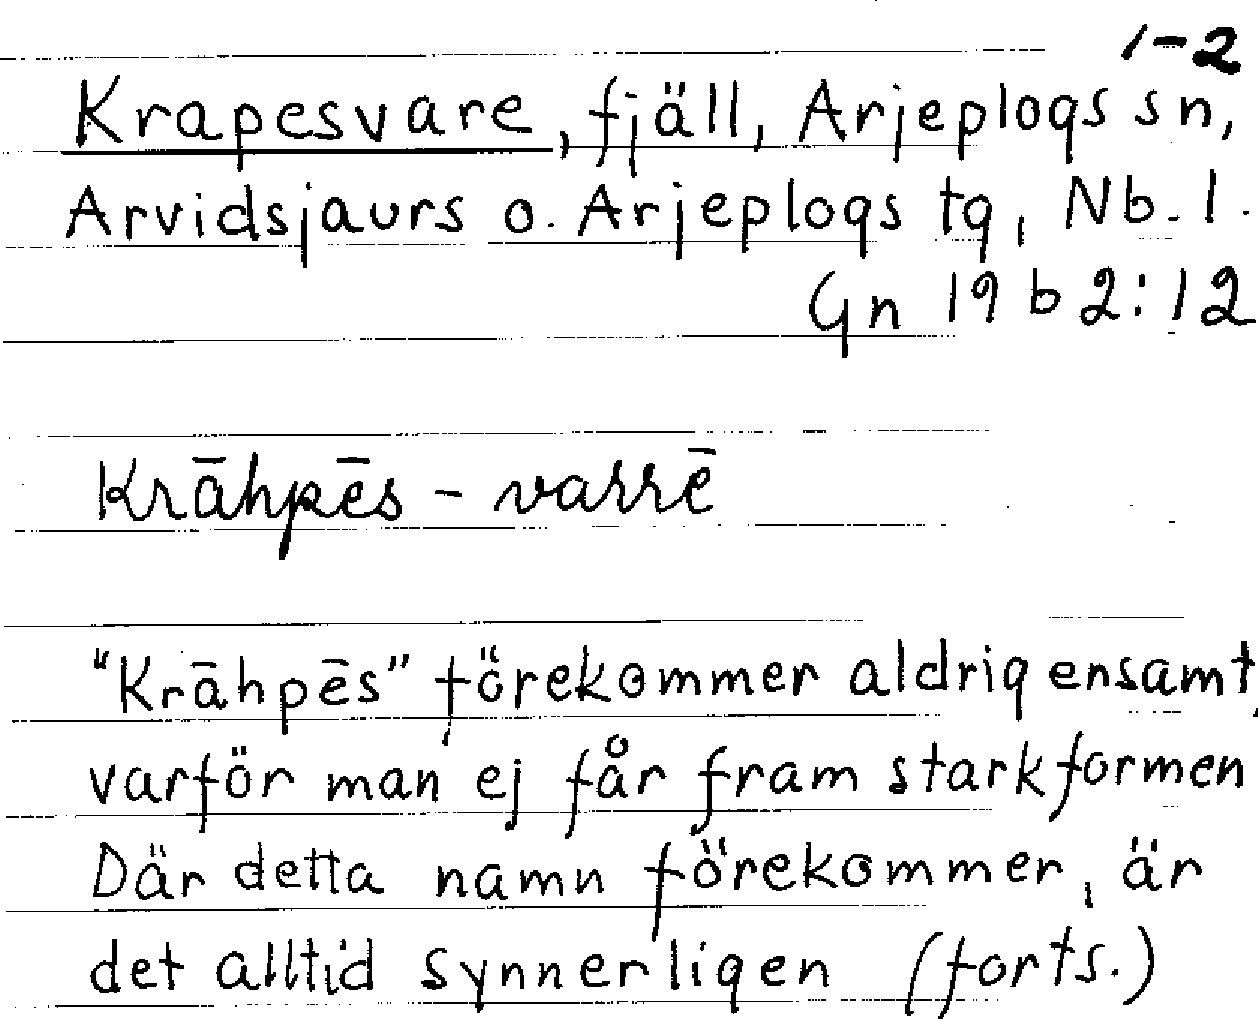 1-2
Krapesvare, fjäll, Arjeplogs sn,
Arvidsjaurs o. Arjeplogs tg, Nb. l.
Gn 19 b 2:12
Krāhpēs - varrē
"Krāhpēs" förekommer aldrig ensamt,
varför man ej får fram starkformen
Där detta namn förekommer, är
det alltid synnerligen (forts.)